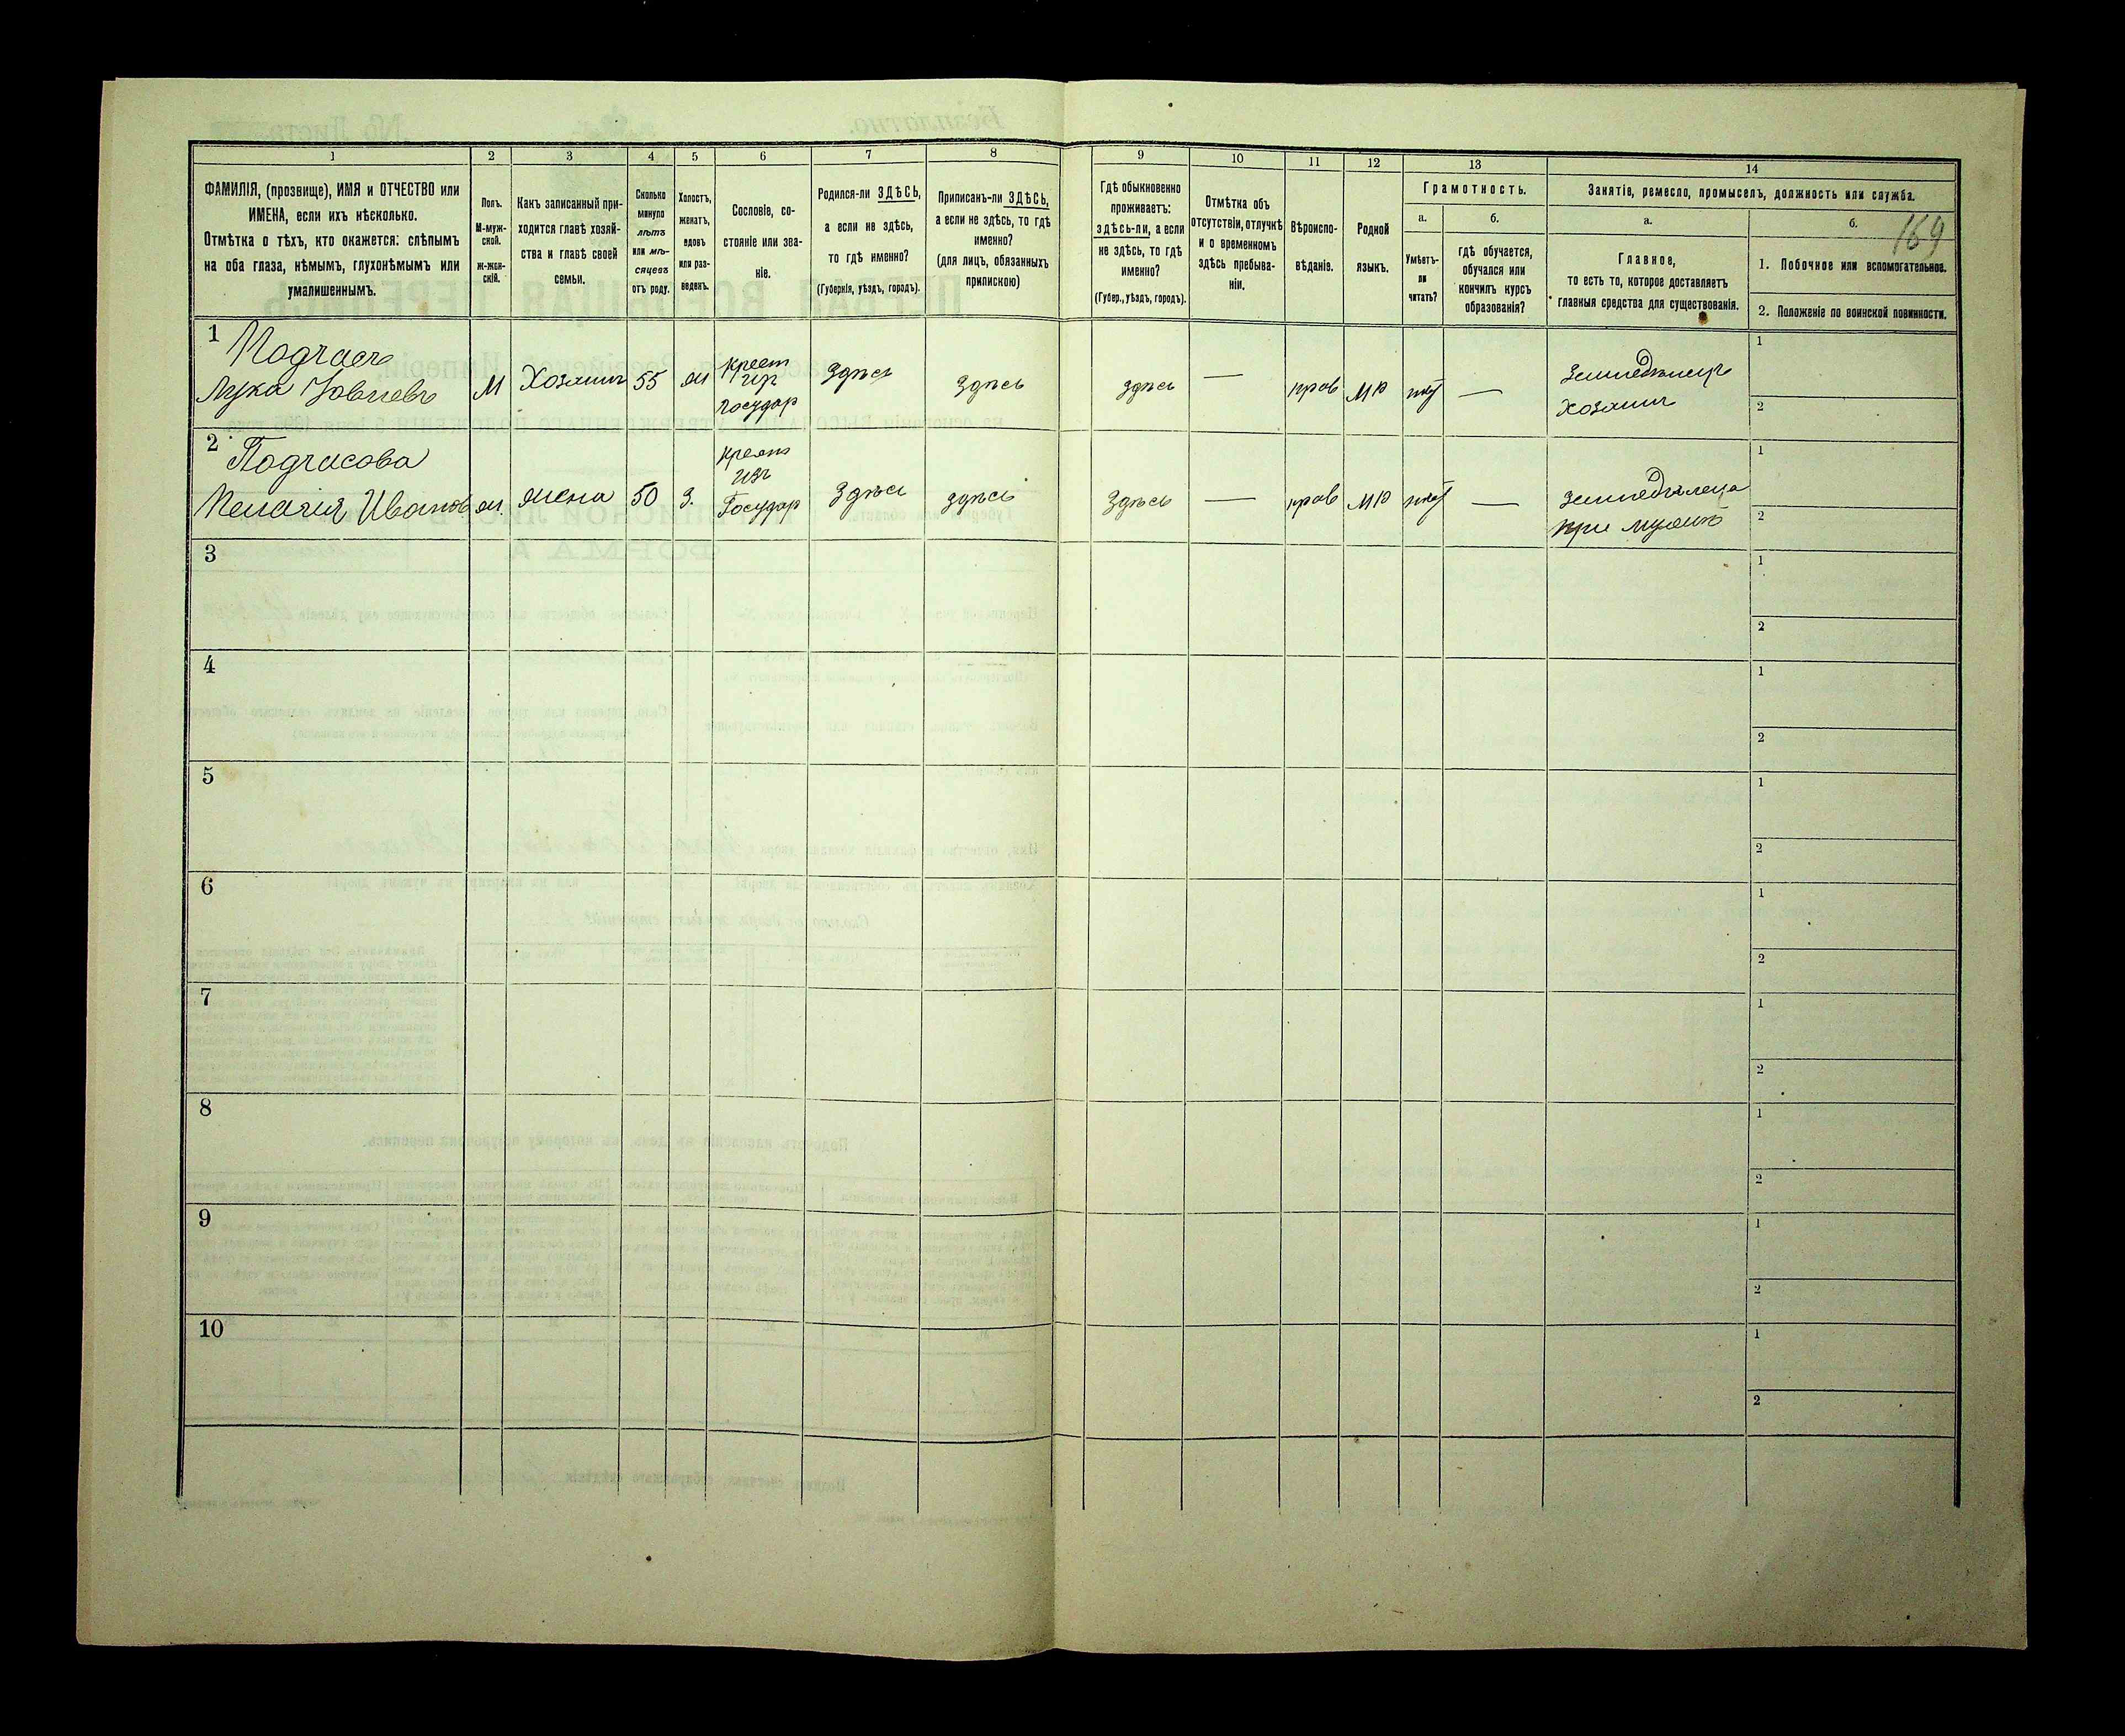 1 2 3 4 5 6 7 8 9 10 11 12 13 14
ФАМИЛІЯ, (прозвище), ИМЯ и ОТЧЕСТВО или
ИМЕНА, если ихъ нѣсколько.
Отмѣтка о тѣхъ, кто окажется: слѣпымъ
на оба глаза, нѣмымъ, глухонѣмымъ или
умалишеннымъ.
Полъ.
М-муж-
ской.
ж-жен-
скій.
Какъ записанный при-
ходится главѣ хозяй-
ства и главѣ своей
семьи.
Сколько
минуло
лѣтъ
или мѣ-
сяцевъ
отъ роду.
Холостъ,
женатъ,
вдовъ
или раз-
веденъ.
Сословіе, со-
стояніе или зва-
ніе.
Родился-ли ЗДѢСЬ,
а если не здѣсь,
то гдѣ именно?
(Губернія, уѣздъ, городъ).
Приписанъ-ли ЗДѢСЬ,
а если не здѣсь, то гдѣ
именно?
(для лицъ, обязанныхъ
припискою)
Гдѣ обыкновенно
проживаетъ:
здѣсь-ли, а если
не здѣсь, то гдѣ
именно?
(Губер., уѣздъ, городъ).
Отмѣтка объ
отсутствіи, отлучкѣ
и о временномъ
здѣсь пребыва-
ніи.
Вѣроиспо-
вѣданіе.
Родной
языкъ.
Грамотность.
а.
Умѣетъ-
ли
читать?
б.
гдѣ обучается,
обучался или
кончилъ курсъ
образованія?
Занятіе, ремесло, промыселъ, должность или служба.
а.
Главное,
то есть то, которое доставляетъ
главныя средства для существованія.
б.
169
1. Побочное или вспомогательное.
2. Положеніе по воинской повинности.
1
Лука
М
Хозяинъ
55
ж
крест
изъ
государ
Здѣсь
здѣсь
здѣсь
—
прав
МР
нѣт
—
Земледѣлецъ
хозяинъ
1
2
2
Подчасова
Пелагія Иванов
ж.
жена
50
З.
крест
изъ
Государ
Здѣсь
здѣсь
Здѣсь
—
прав
МР
нѣт
—
при мужѣ
1
2
3
1
2
4
1
2
5
1
2
6
1
2
7
1
2
8
1
2
9
1
2
10
1
2